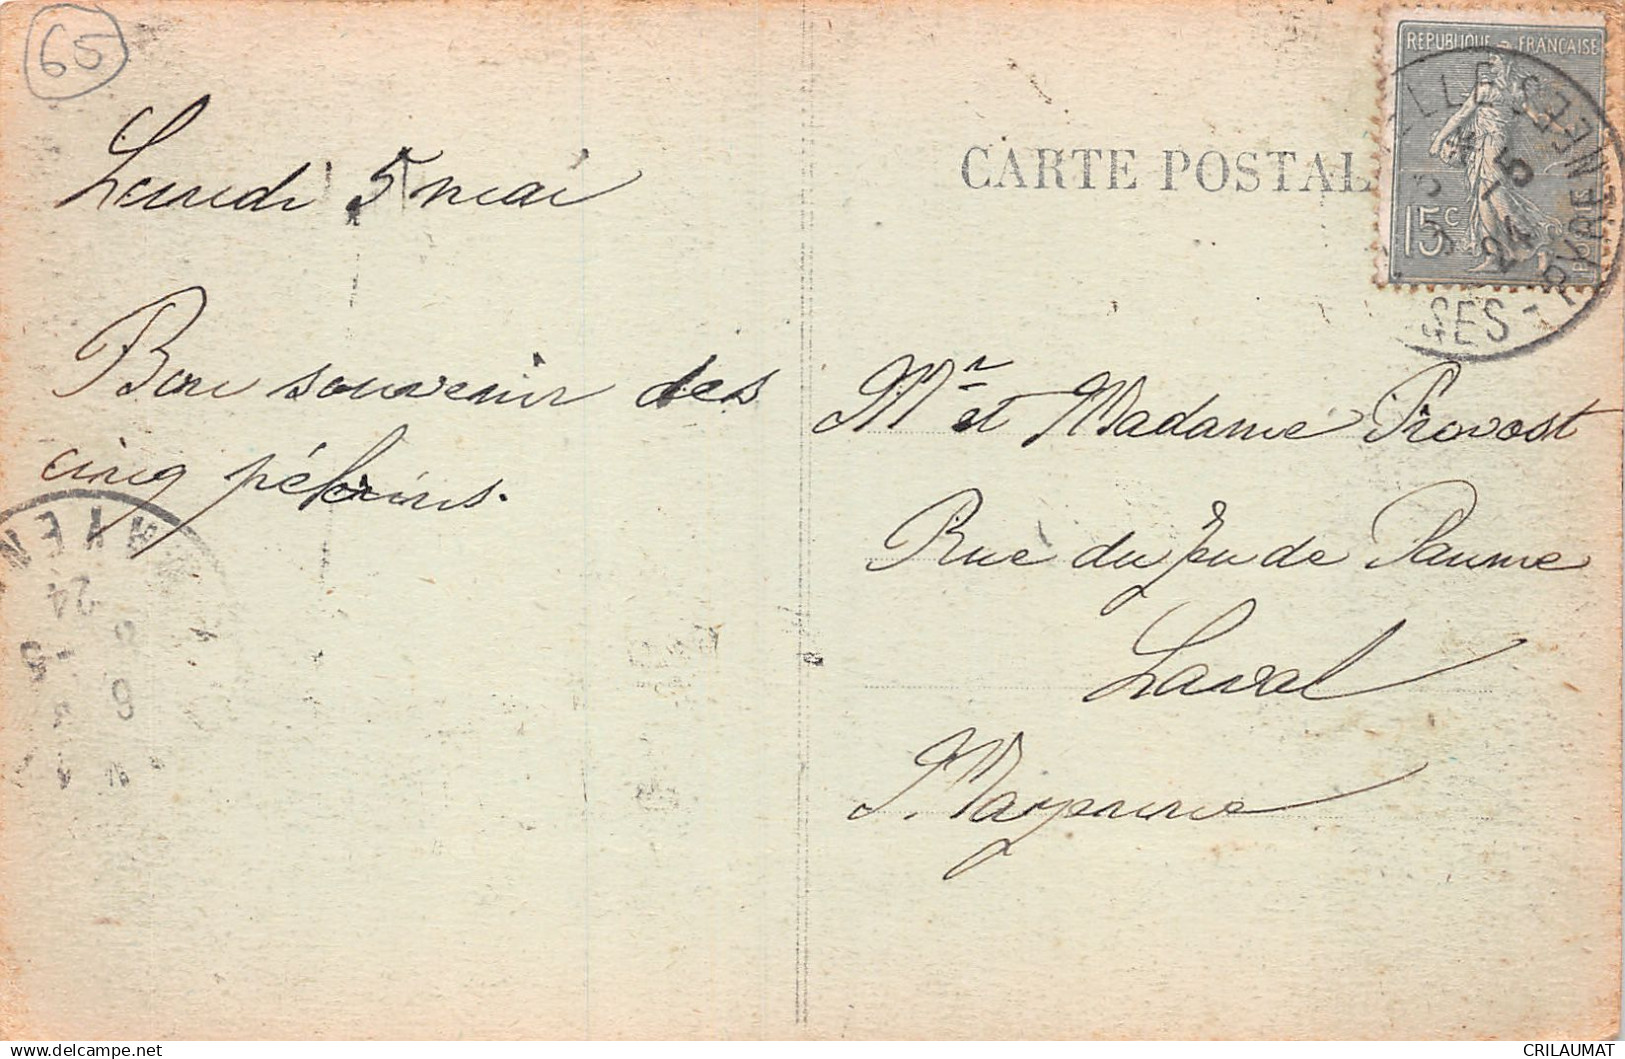 65
Lundi 5 mai
Bon souvenir des
cinq pélerins.
CARTE POSTAL
REPUBLIQUE FRANCAISE
15c
5
24
PYRENEES
SES
Mr et Madame Provost
Rue du Jeu de Paume
Laval
Mayenne
24
5
CRILAUMAT